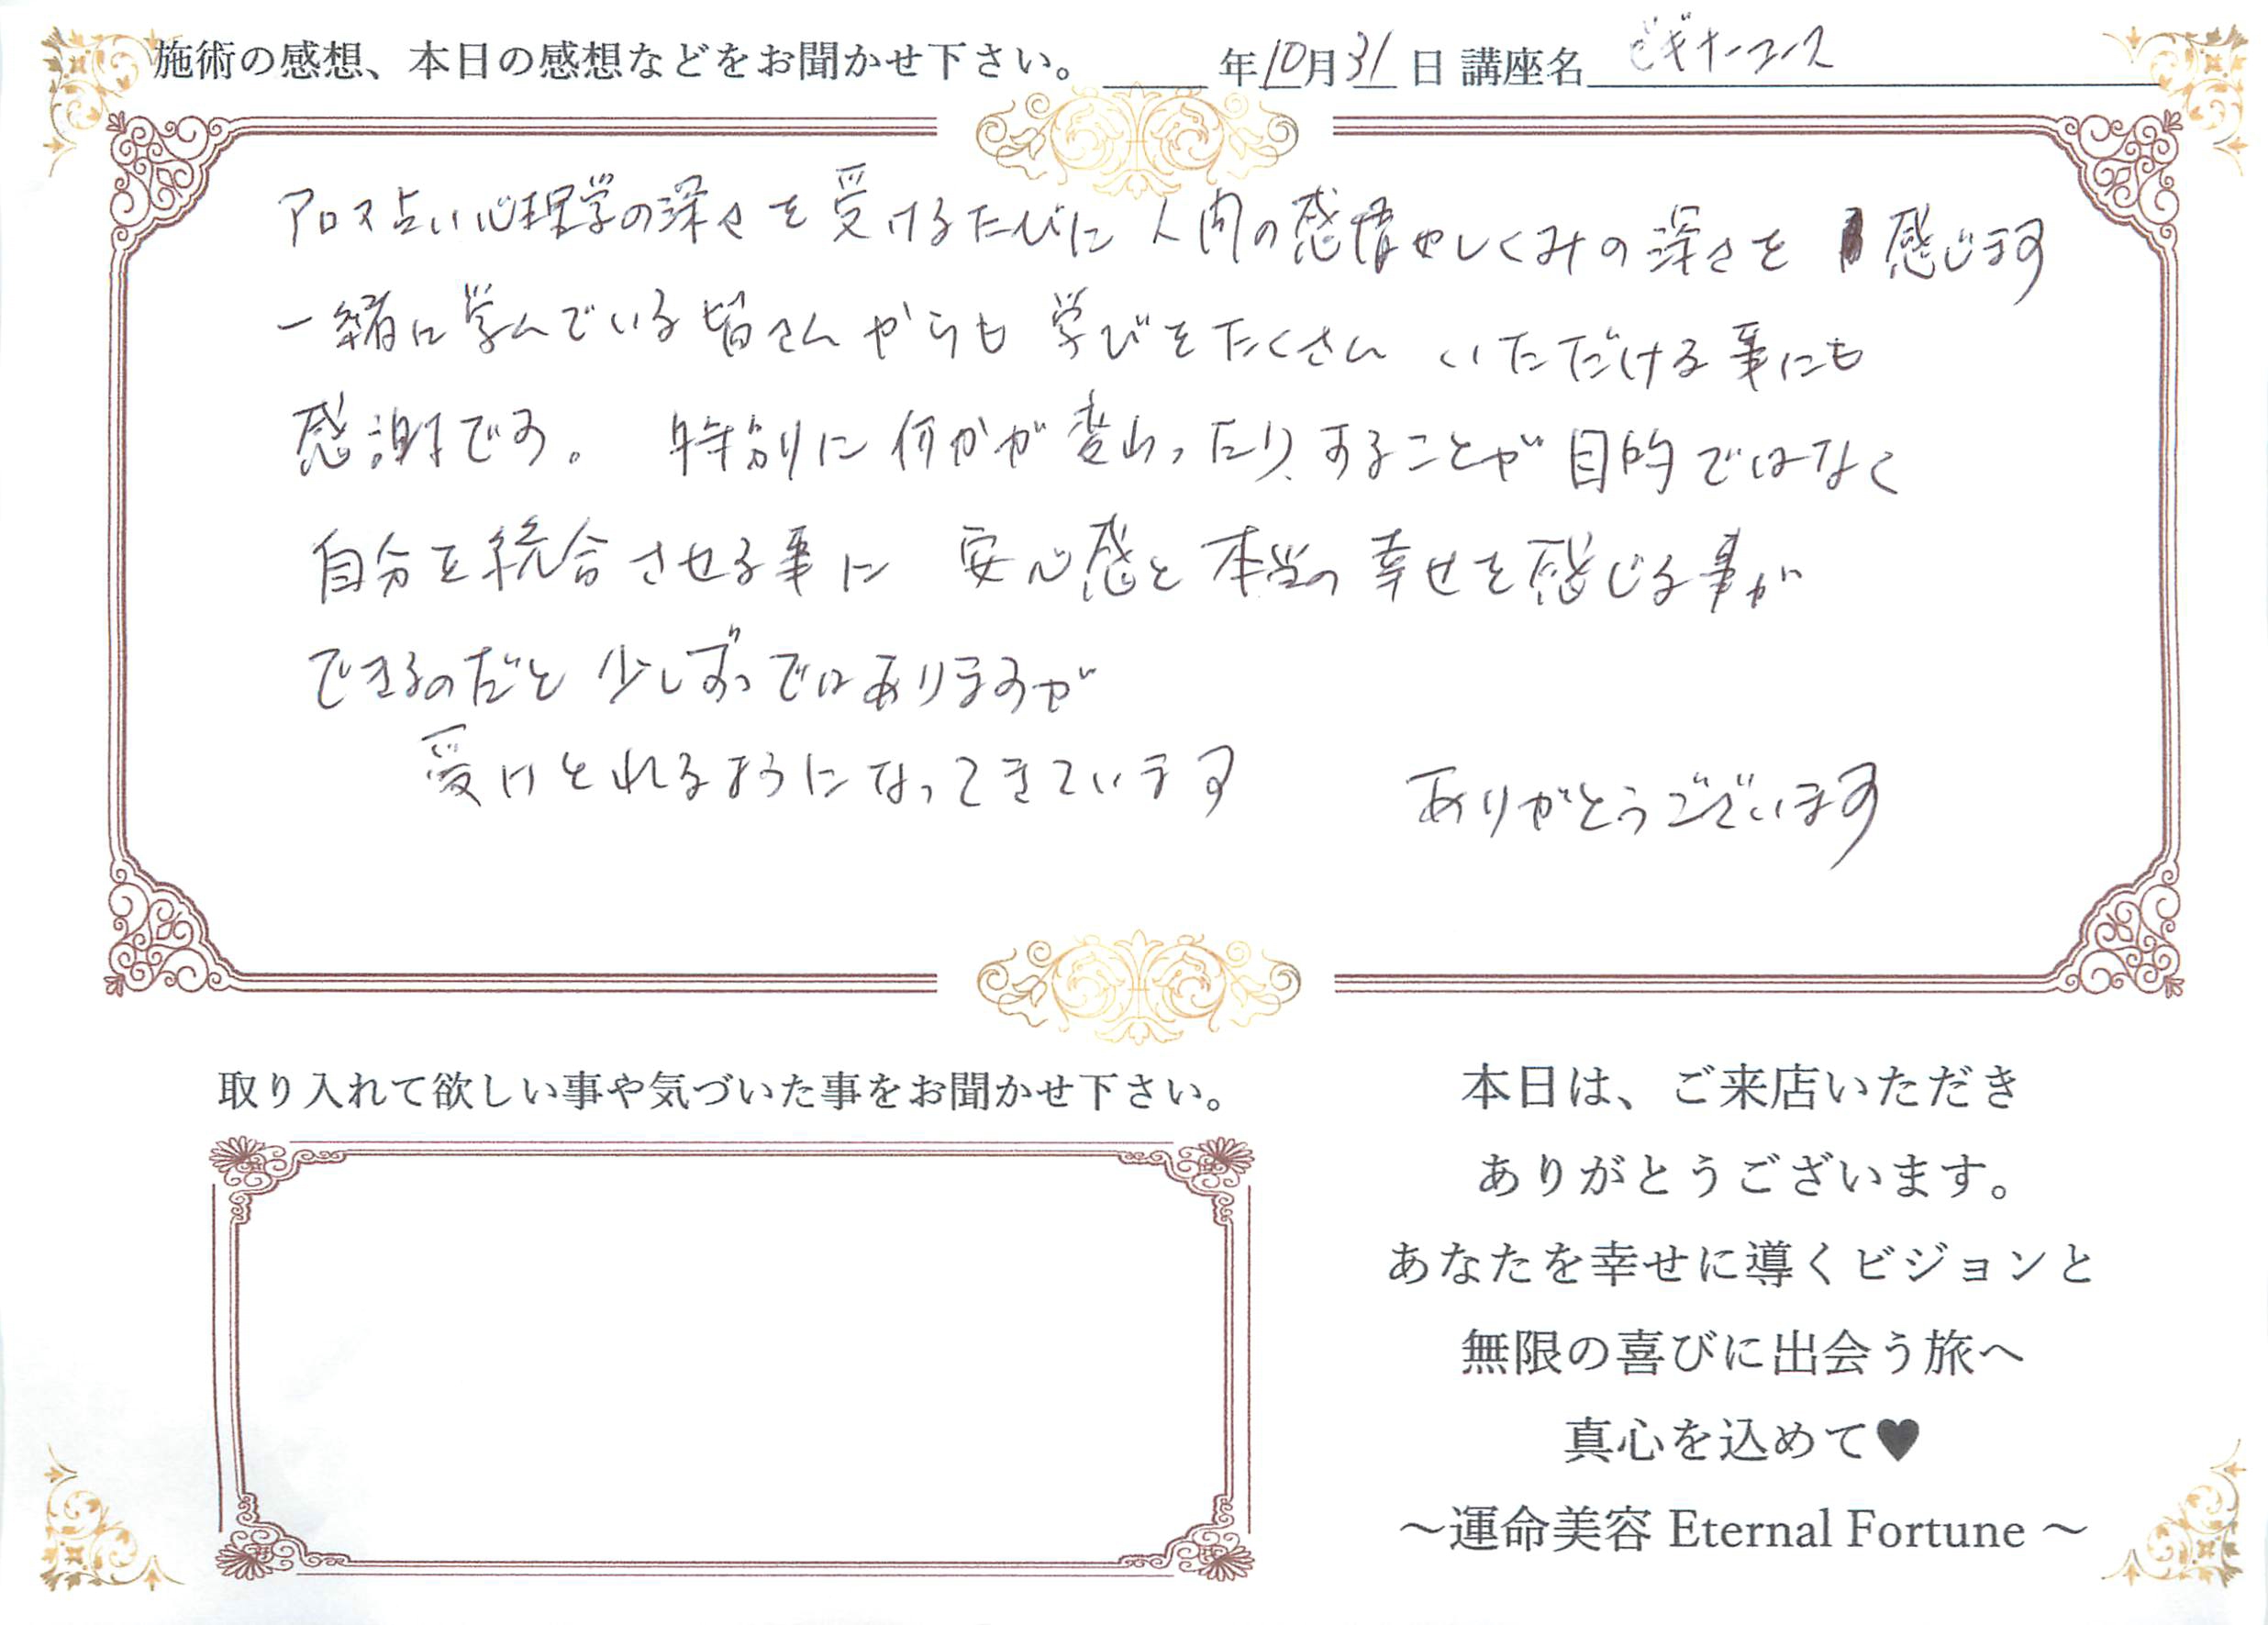 施術の感想、本日の感想などをお聞かせ下さい。 年10月31日 講座名 ビギナーコース
アロマ占い心理学の深さを受けるたびに人間の感情やしくみの深さを 感じます
一緒に学んでいる皆さんからも 学びをたくさん いただける事にも
感謝です。 特別に何かが変わったりすることが目的ではなく
自分を統合させる事に 安心感と本当の幸せを感じる事が
できるのだと少しずつではありますが
受けとれるようになってきています ありがとうございます
取り入れて欲しい事や気づいた事をお聞かせ下さい。
本日は、ご来店いただき
ありがとうございます。
あなたを幸せに導くビジョンと
無限の喜びに出会う旅へ
真心を込めて♥
～運命美容 Eternal Fortune ～